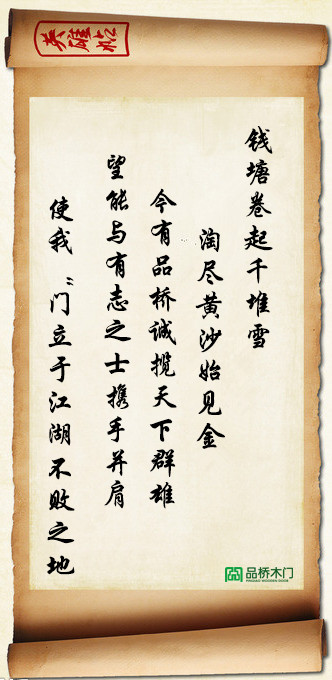 英雄帖
钱塘卷起千堆雪
淘尽黄沙始见金
今有品桥诚揽天下群雄
望能与有志之士携手并肩
使我〃门立于江湖不败之地
品桥木门
PINQIAO WOODEN DOOR